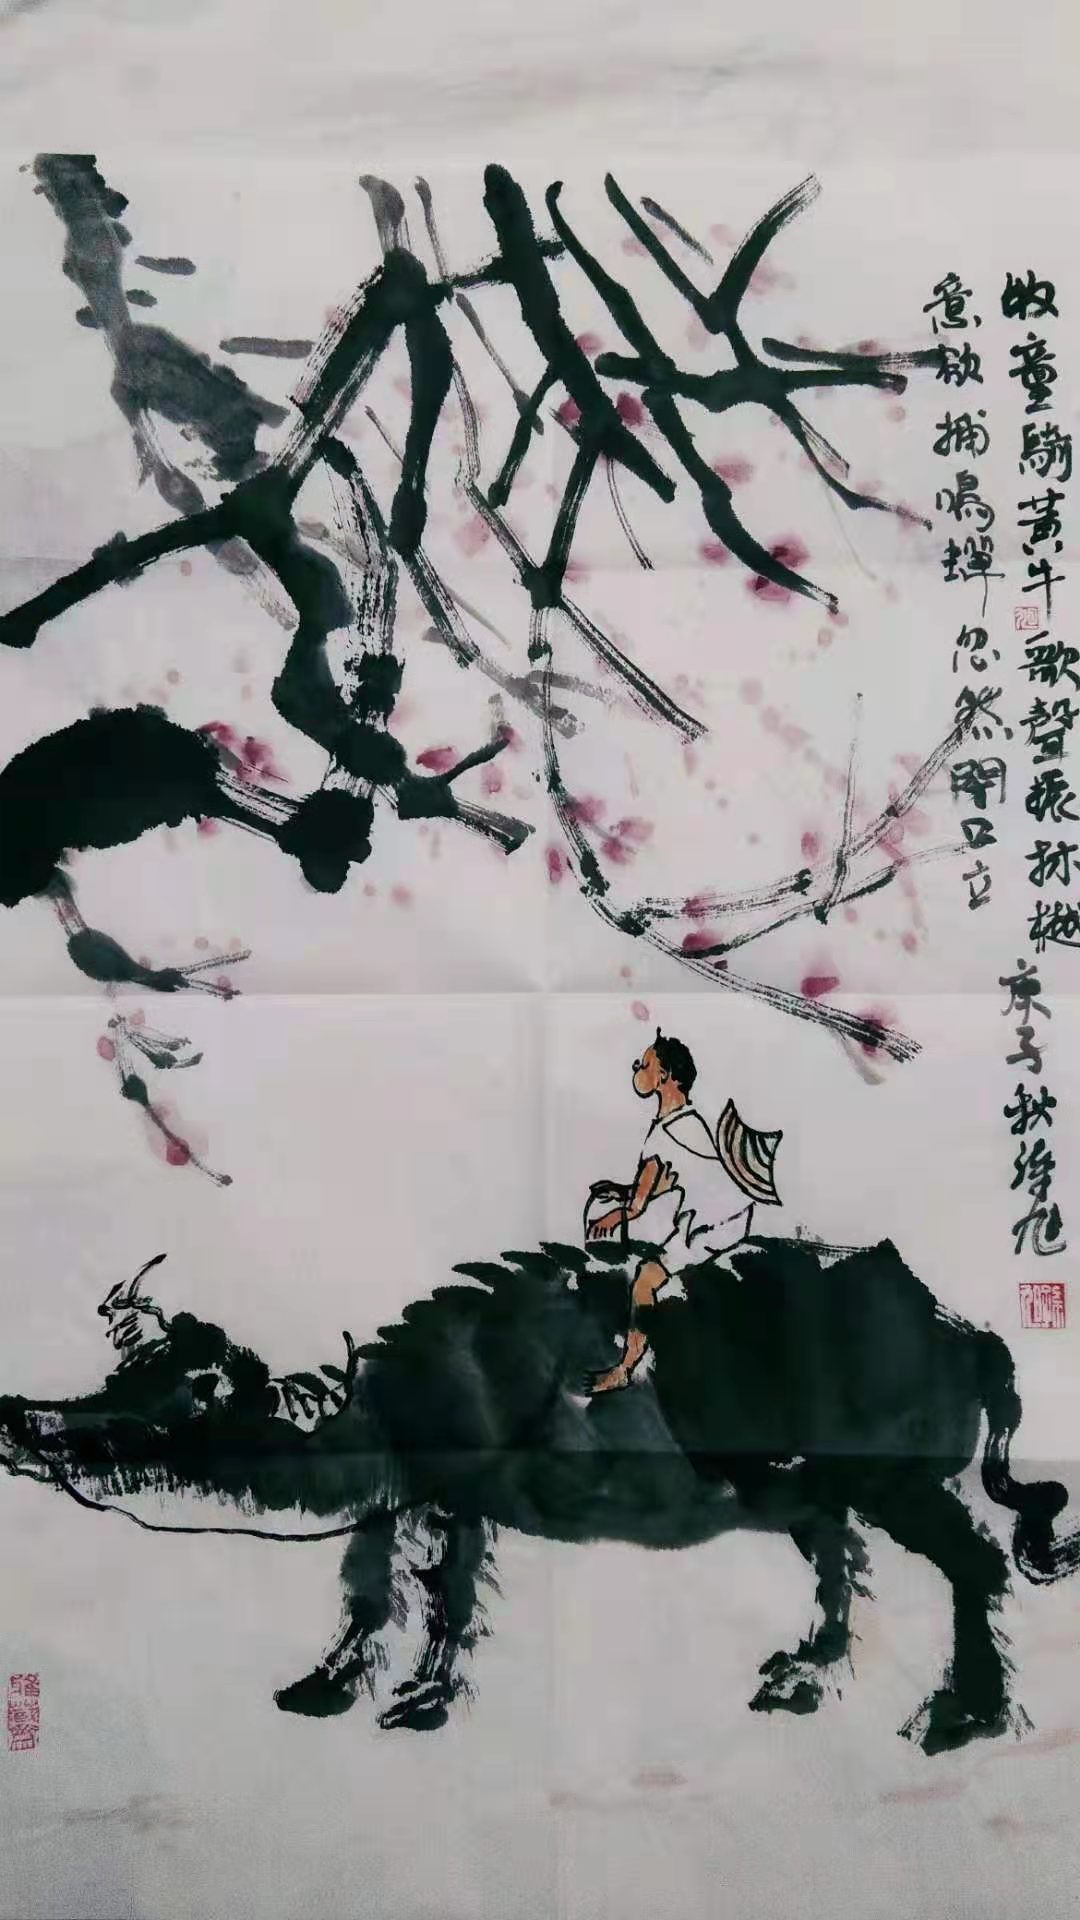 牧童騎黃牛歌聲振林樾庚子秋
意欲捕鳴蟬忽然閉口立